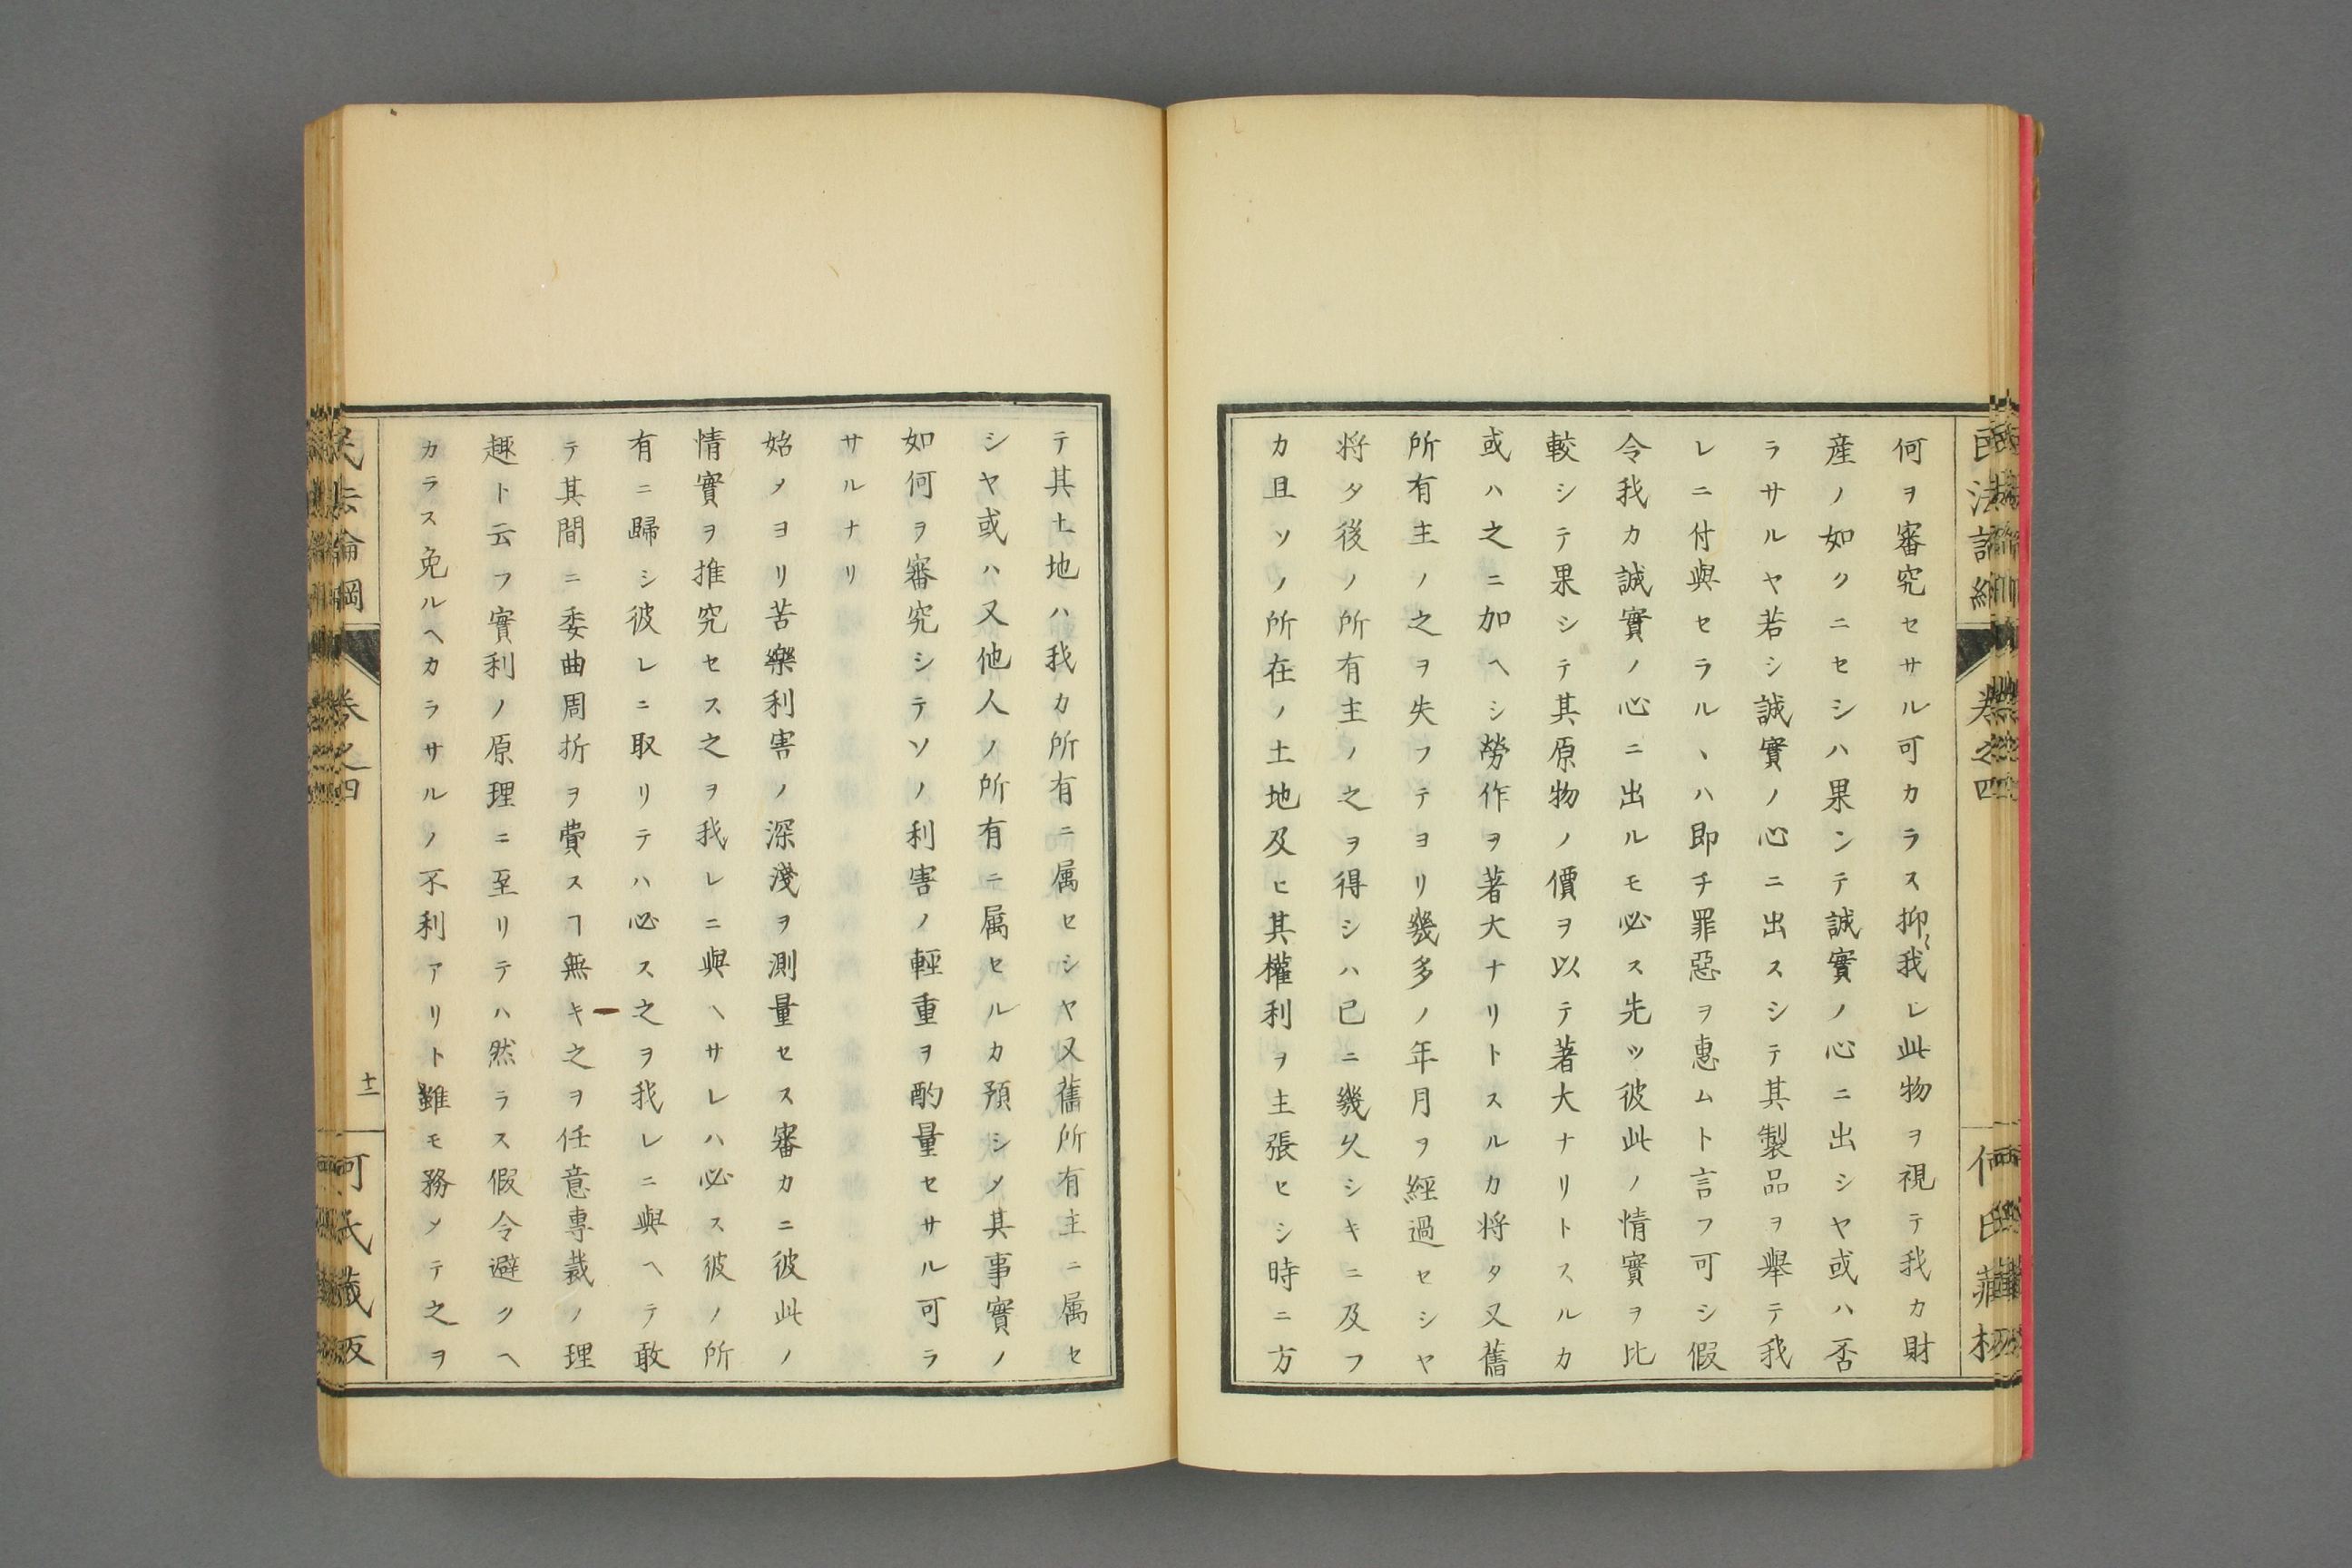 何ヲ審究セサル可カラス抑〻我レ此物ヲ視テ我カ財
産ノ如クニセシハ果シテ誠實ノ心ニ出シヤ或ハ否
ラサルヤ若シ誠實ノ心ニ出スシテ其製品ヲ舉テ我
レニ付與セラルヽハ即チ罪惡ヲ惠ムト言フ可シ假
令我カ誠實ノ心ニ出ルモ必ス先ツ彼此ノ情實ヲ比
較シテ果シテ其原物ノ價ヲ以テ著大ナリトスルカ
或ハ之ニ加ヘシ勞作ヲ著大ナリトスルカ将タ又舊
所有主ノ之ヲ失フテヨリ幾多ノ年月ヲ經過セシヤ
将タ後ノ所有主ノ之ヲ得シハ已ニ幾久シキニ及フ
カ且ソノ所在ノ土地及ヒ其權利ヲ主張ヒシ時ニ方
テ其土地ハ我カ所有ニ属セシヤ又舊所有主ニ属セ
シヤ或ハ又他人ノ所有ニ属セルカ預シメ其事實ノ
如何ヲ審究シテソノ利害ノ輕重ヲ酌量セサル可ラ
サルナリ
始メヨリ苦樂利害ノ深淺ヲ測量セス審カニ彼此ノ
情實ヲ推究セス之ヲ我レニ與ヘサレハ必ス彼ノ所
有ニ歸シ彼レニ取リテハ必ス之ヲ我レニ與ヘテ敢
テ其間ニ委曲周折ヲ費スヿ無キ之ヲ任意專裁ノ理
趣ト云フ實利ノ原理ニ至リテハ然ラス假令避クヘ
カラス免ルヘカラサルノ不利アリト雖モ務メテ之ヲ
民法論綱
卷之四
十二
何氏藏板